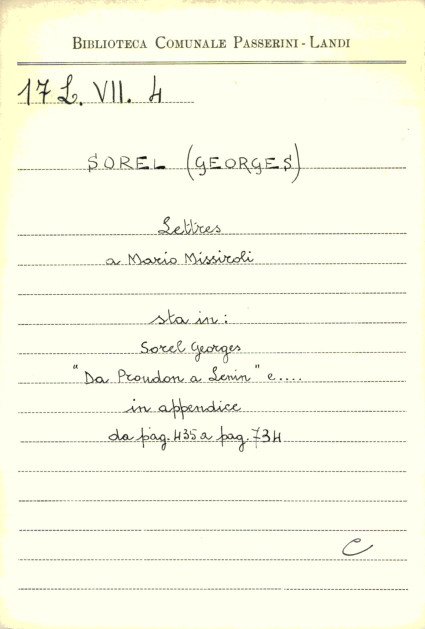 BIBLIOTECA COMUNALE PASSERINI - LANDI
17 L. VII. 4
SOREL (GEORGES)
Lettres
a Mario Missiroli
sta in:
Sorel Georges
"Da Proudon a Lenin" e....
in appendice
da pag. 435 a pag. 734
C